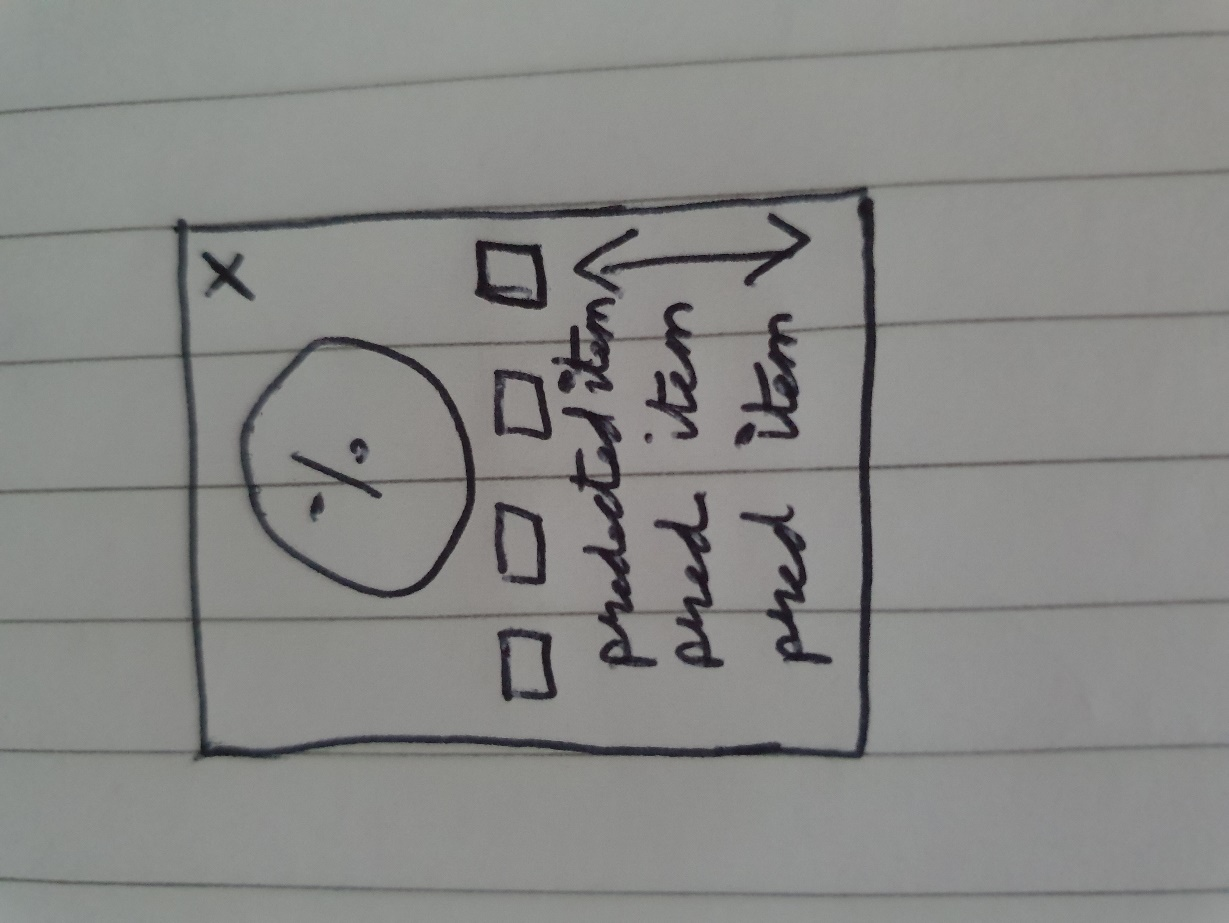 X
%
predected item
pred item
pred item